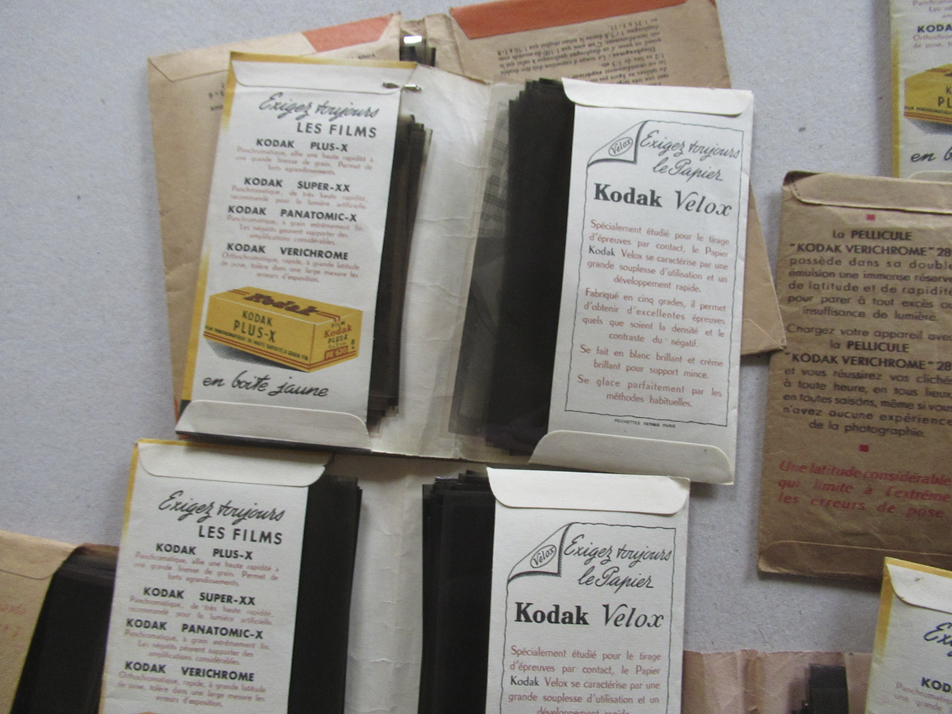 Exigez toujours
LES FILMS
KODAK PLUS-X
Panchromatique, allie une haute rapidité à
une grande finesse de grain. Permet de
forts agrandissements.
KODAK SUPER-XX
Panchromatique, de très haute rapidité,
recommandé pour la lumière artificielle.
KODAK PANATOMIC-X
Panchromatique, à grain extrêmement fin.
Les négatifs peuvent supporter des
amplifications considérables.
KODAK VERICHROME
Orthochromatique, rapide, à grande latitude
de pose, tolère dans une large mesure les
erreurs d'exposition.
Kodak
KODAK
PLUS-X
FILM
Kodak
PLUS-X
en boîte jaune
Velox
Exigez toujours
le Papier
Kodak Velox
Spécialement étudié pour le tirage
d'épreuves par contact, le Papier
Kodak Velox se caractérise par une
grande souplesse d'utilisation et un
développement rapide.
Fabriqué en cinq grades, il permet
d'obtenir d'excellentes épreuves
quels que soient la densité et le
contraste du négatif.
Se fait en blanc brillant et crème
brillant pour support mince.
Se glace parfaitement par les
méthodes habituelles.
KODA
PL
en b
La PELLICULE
"KODAK VERICHROME" 28
possède dans sa doubl
émulsion une immense réserve
de latitude et de rapidité
pour parer à tout excès
insuffisance de lumière.
Chargez votre appareil avec
la PELLICULE
"KODAK VERICHROME" 28
et vous réussirez vos cliché
à toute heure, en tous lieux
en toutes saisons, même si vou
n'avez aucune expérience
de la photographie.
Une latitude considérable
qui limite à l'extrême
les erreurs de pose.
Exigez toujours
LES FILMS
KODAK PLUS-X
Panchromatique, allie une haute rapidité à
une grande finesse de grain. Permet de
forts agrandissements.
KODAK SUPER-XX
Panchromatique, de très haute rapidité,
recommandé pour la lumière artificielle.
KODAK PANATOMIC-X
Panchromatique, à grain extrêmement fin.
Les négatifs peuvent supporter des
amplifications considérables.
KODAK VERICHROME
Orthochromatique, rapide, à grande latitude
de pose, tolère dans une large mesure les
erreurs d'exposition.
Velox
Exigez toujours
le Papier
Kodak Velox
Spécialement étudié pour le tirage
d'épreuves par contact, le Papier
Kodak Velox se caractérise par une
grande souplesse d'utilisation et un
développement rapide.
KODA